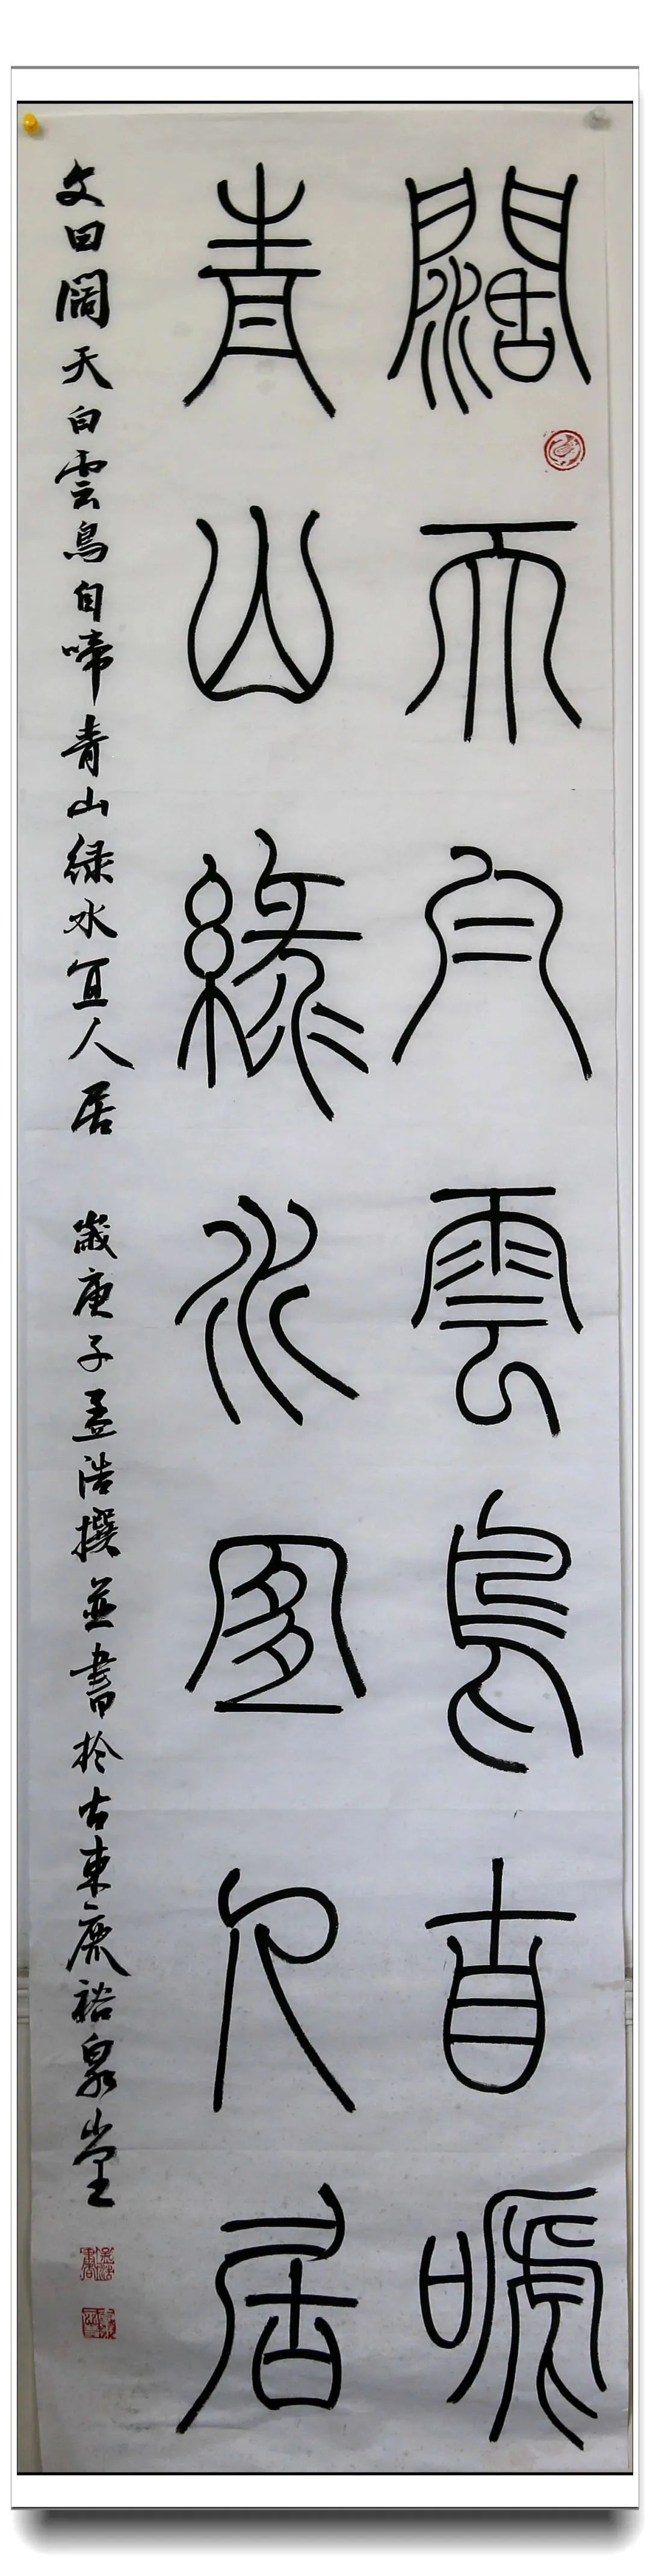 闊天白雲鳥自嗁
青山綠水宜人居
文曰闊天白雲鳥自啼青山绿水宜人居 歲庚子孟浩撰並書於古東鹿裕泉堂